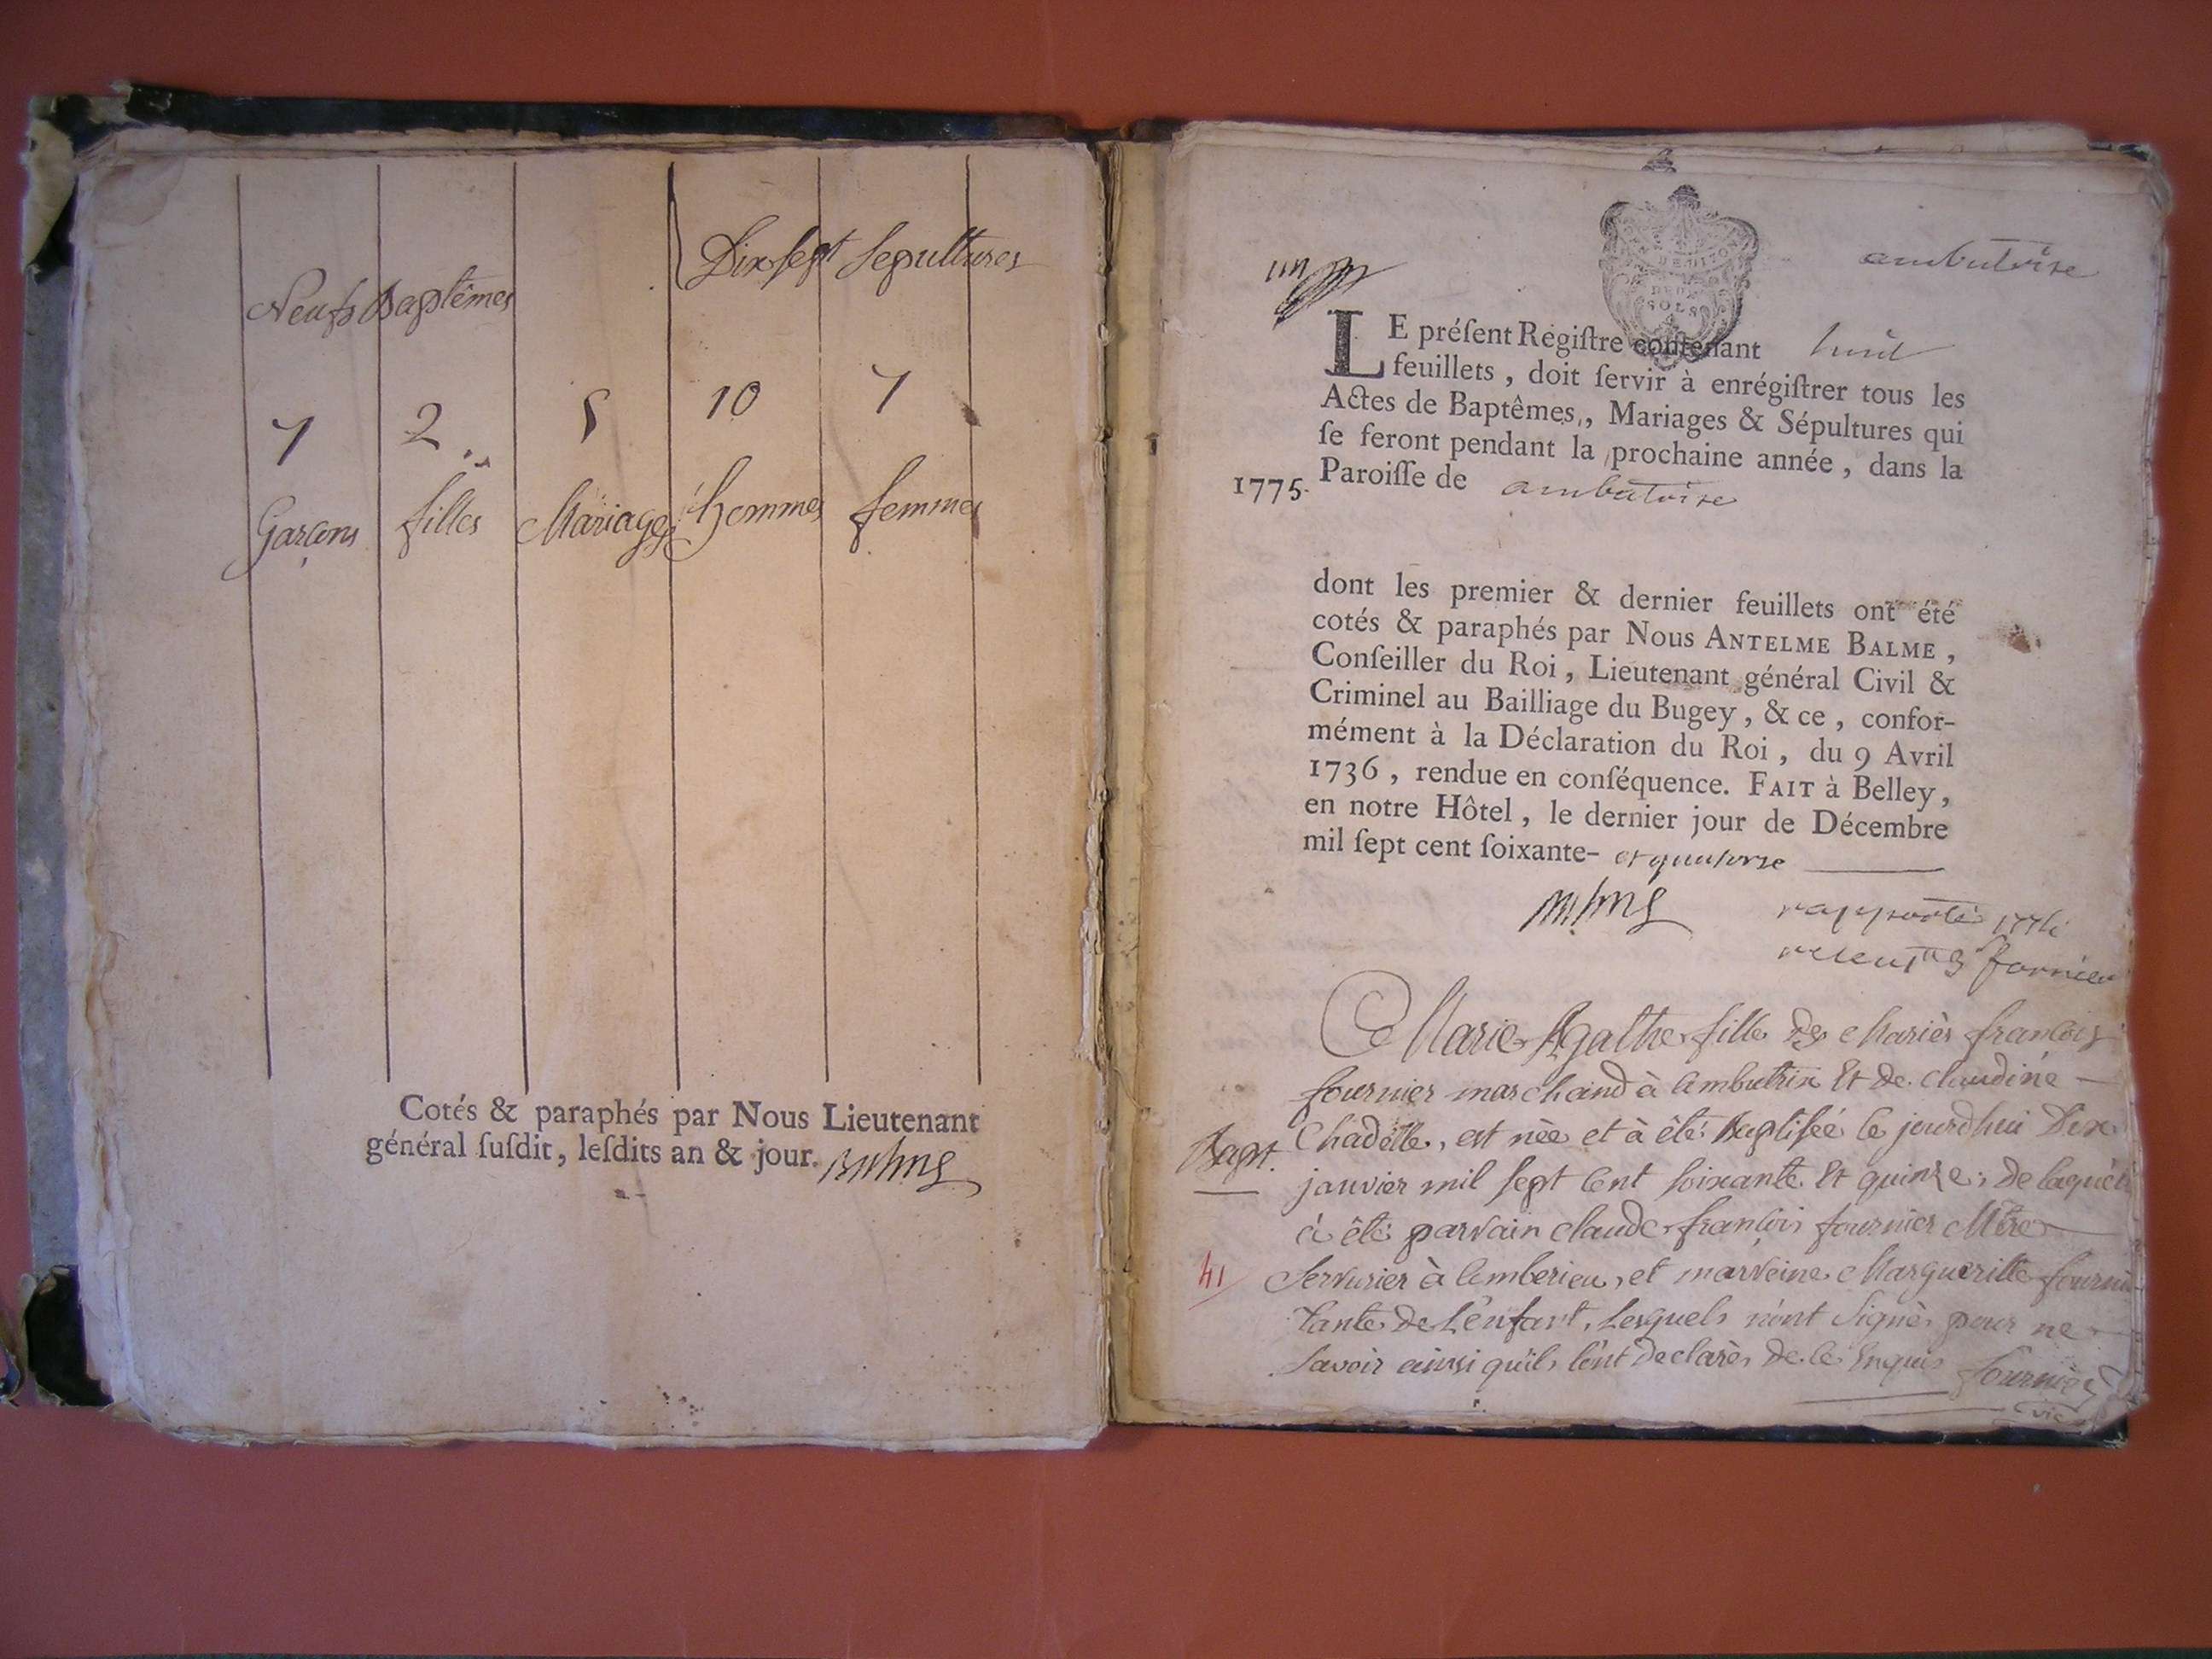 Neufs Baptêmes
Dix sept Sepultures
7 2 5 10 7
Garçons filles Mariages hommes femmes
Cotés & paraphés par Nous Lieutenant
général ſuſdit, leſdits an & jour.
ambutrixe
DEUX
SOLS
LE préſent Regiſtre contenant huit
feuillets, doit ſervir à enrégiſtrer tous les
Actes de Baptêmes, Mariages & Sépultures qui
ſe feront pendant la prochaine année, dans la
1775. Paroiſſe de ambutrixe
dont les premier & dernier feuillets ont été
cotés & paraphés par Nous ANTELME BALME,
Conſeiller du Roi, Lieutenant général Civil &
Criminel au Bailliage du Bugey, & ce, confor-
mément à la Déclaration du Roi, du 9 Avril
1736, rendue en conſéquence. FAIT à Belley,
en notre Hôtel, le dernier jour de Décembre
mil ſept cent ſoixante- et quatorze
rapporté
Marie Agathe fille des Mariès francois
fournier marchand à ambutrix Et de claudine
Bapt. Chadelle, est nèe et à èté Baptisée le jourdhui Dix
janvier mil sept cent soixante Et quinze, de laquelle
à èté parrain claude francois fournier Mtre
41 Serrurier à amberieu, et marreine Margueritte fourni
tante de L'enfant, Lesquels n'ont signès pour ne
savoir ainsi quils l'ont declarès de ce Enquis fournier
vic